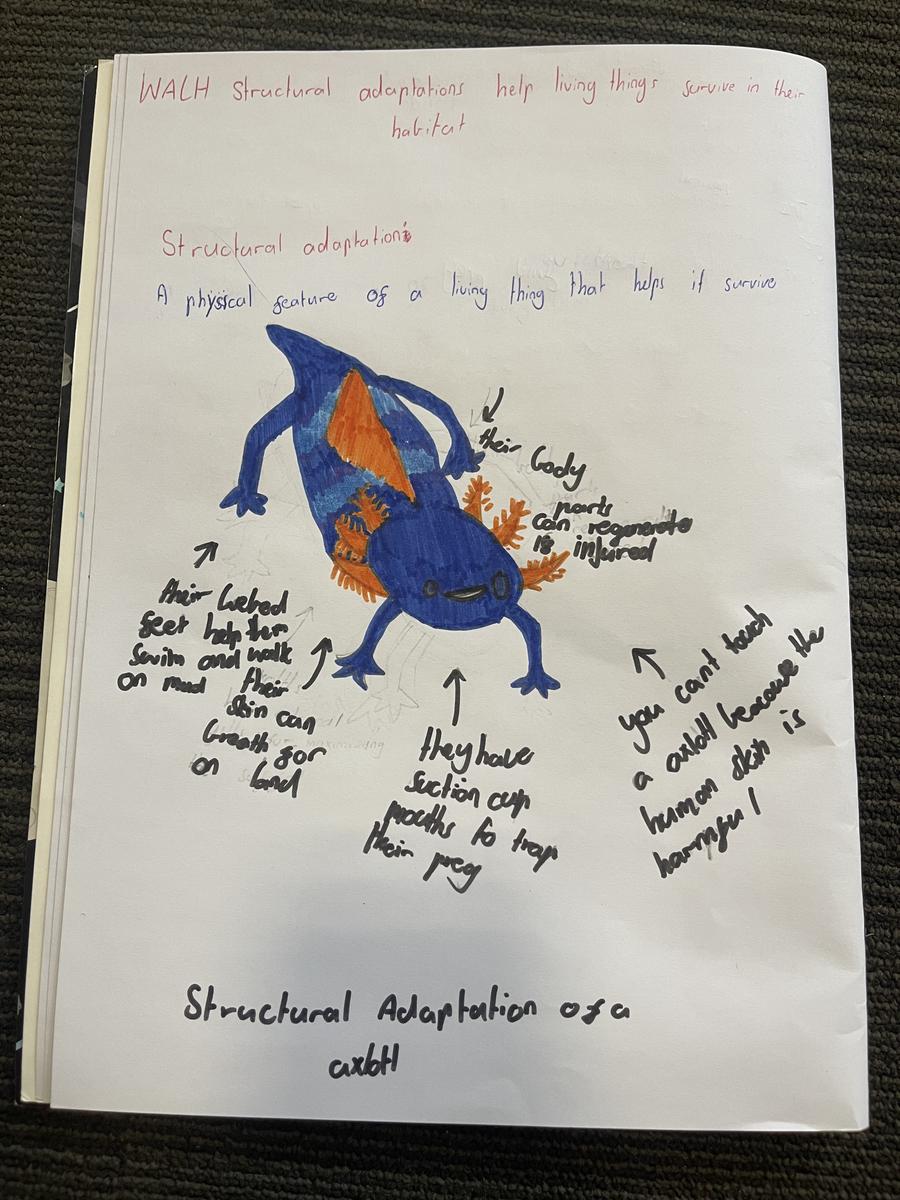 WALH Structural adaptations help living things survive in their
habitat
Structural adaptations
A physical feature of a living thing that helps it survive
their body
parts
can regenerate
is injured
their webed
feet help them
swim and walk
on mud
their
skin can
breath for
on land
they have
suction cup
mouths to trap
their prey
you can't touch
a axlotl because the
human skin is
harmful
Structural Adaptation of a
axlotl